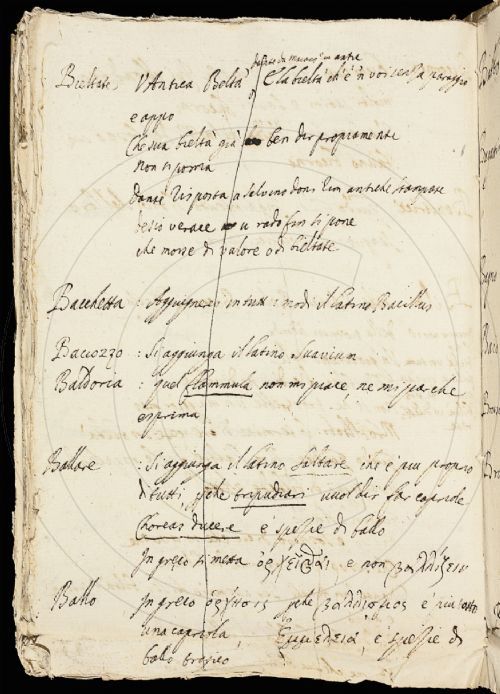 Bieltate, V Antica Beltà E la bieltà ch'è 'n voi senza paraggio
e appio
Che sua bieltà già ben dir propiamente
non si porria
Dante risposta a Salvino doni Rim antiche stampate
desio verace u rado fin si pone
che mosse di valore o di bieltate
Bacchetta : Aggiugnerei in tutti i modi il latino Bacillus
Baciozzo : Si aggiunga il latino suavium
Baldoria : quel flammula non mi piace, ne mi par che
esprima
Ballare : Si aggiunga il latino saltare che è piu proprio
di tutti, perche tripudiari vuol dir far capriole
Choreas ducere e spezie di ballo
In greco si metta ὀρχεῖσθαι e non βαλλίζειν
Ballo In greco ὄρχησις perche βαλλισμος è piu tosto
una capriola, Εμμελεια, è spezie di
ballo tragico